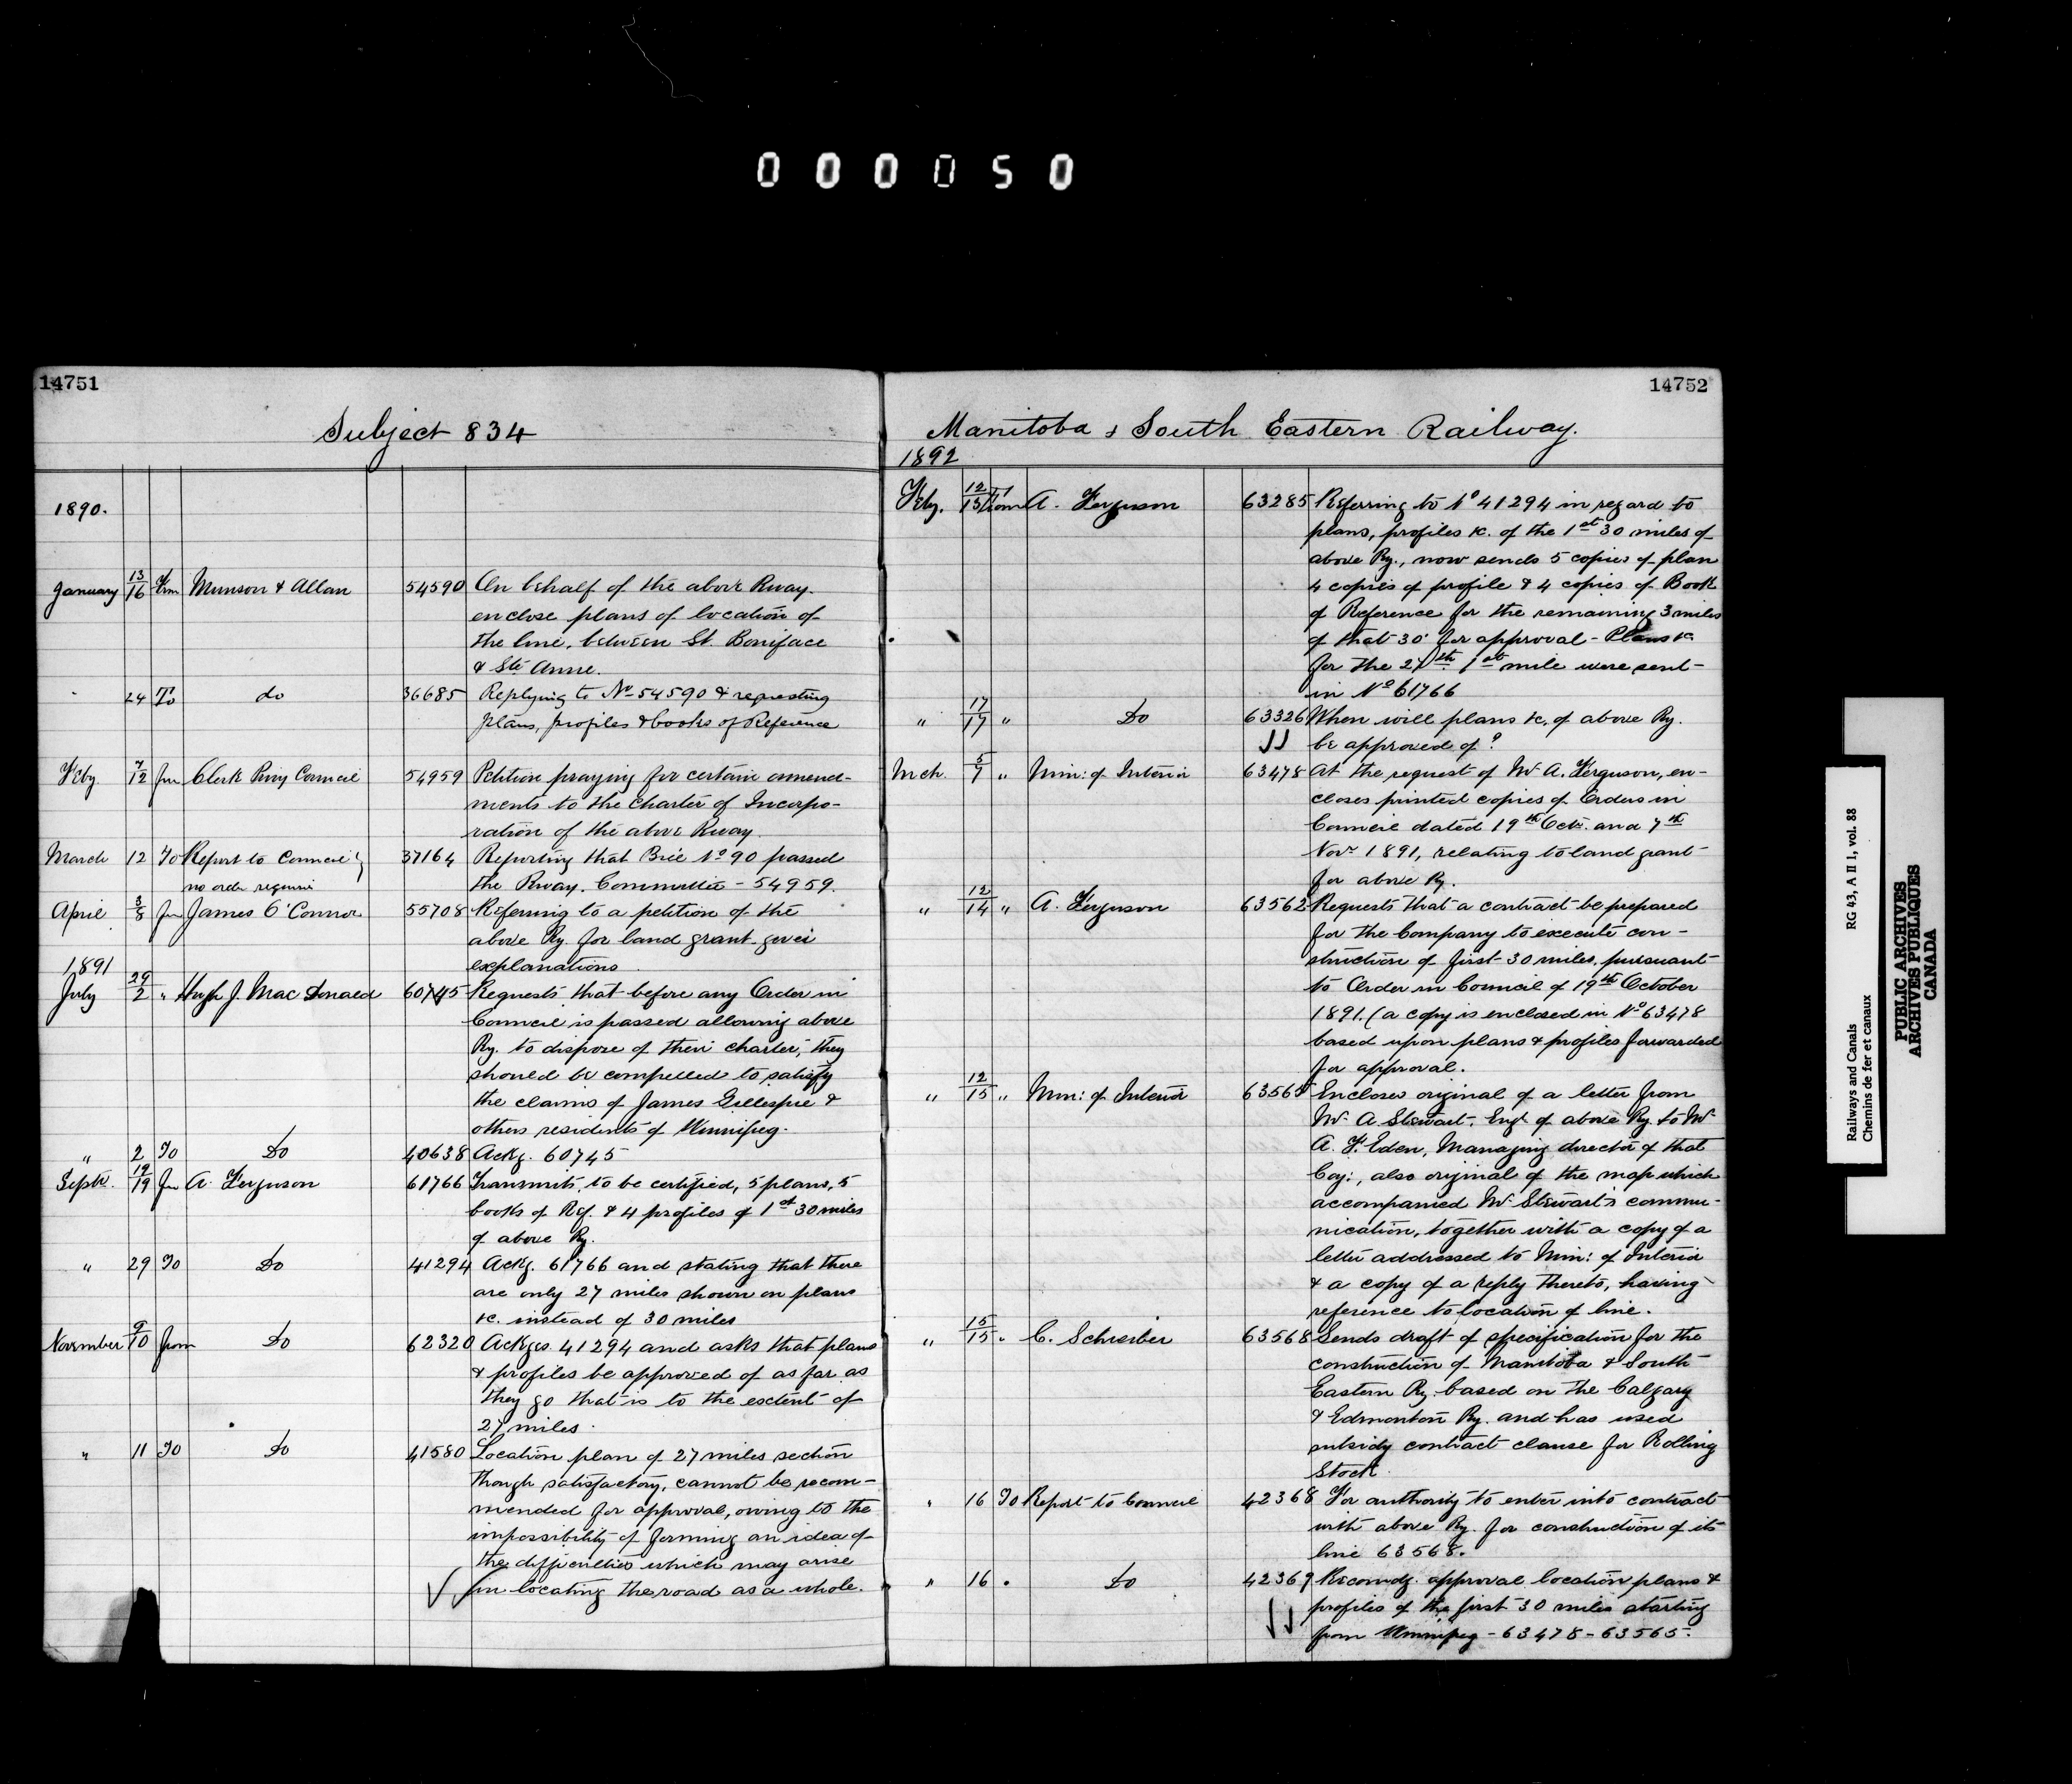 000050
14751
Subject 834
1890.
January 13/16 Frm Munson & Allan 54590 On behalf of the above Rway.
enclose plans of location of
the line, between St. Boniface
& Ste Anne.
" 24 To do 36685 Replying to No 54590 & requesting
plans, profiles & books of Reference
Feby. 7/12 fm Clerk Privy Council 54959 Petition praying for certain amend-
ments to the charter of Incorpo-
ration of the above Rway.
March 12 To Report to Council } 37164 Reporting that Bill No 90 passed
no order required the Rway. Committee - 54959.
April 3/8 fm James O'Connor 55708 Referring to a petition of the
above Ry. for land grant gives
explanations
1891
July 29/2 " Hugh J. MacDonald 60745 Requests that before any Order in
Council is passed allowing above
Ry. to dispose of their charter, they
should be compelled to satisfy
the claims of James Gillespie &
others residents of Winnipeg.
" 2 To Do 40638 Ackg. 60745
Septr. 12/19 fm A. Ferguson 61766 Transmits, to be certified, 5 plans, 5
books of Ref. & 4 profiles of 1st 30 miles
of above Ry.
" 29 To Do 41294 Ackg. 61766 and stating that there
are only 27 miles shown on plans
&c. instead of 30 miles
November 9/10 from Do 62320 Ackges 41294 and asks that plans
& profiles be approved of as far as
they go that is to the extent of
27 miles.
" 11 To Do 41580 Location plan of 27 miles section
though satisfactory, cannot be recom-
mended for approval, owing to the
impossibility of forming an idea of
the difficulties which may arise
in locating the road as a whole.
14752
Manitoba & South Eastern Railway.
1892
Feby. 12/13 From A. Ferguson 63285 Referring to No 41294 in regard to
plans, profiles &c. of the 1st 30 miles of
above Ry., now sends 5 copies of plan
4 copies of profile & 4 copies of Book
of Reference for the remaining 3 miles
of that 30 for approval - Plans &c
for the 27th 1st mile were sent
in No 61766
" 17/17 " Do 63326 When will plans &c. of above Ry.
be approved of?
Mch. 5/7 " Min: of Interior 63478 At the request of Mr A. Ferguson, en-
closes printed copies of Orders in
Council dated 19th Octr. and 7th
Novr 1891, relating to land grant
for above Ry.
" 12/14 " A. Ferguson 63562 Requests that a contract be prepared
for the Company to execute con-
struction of first 30 miles, pursuant
to Order in Council of 19th October
1891. (a copy is enclosed in No 63478
based upon plans & profiles forwarded
for approval.
" 12/15 " Min: of Interior 63565 Encloses original of a letter from
Mr A Stewart, Engr of above Ry. to Mr
A. F. Eden, Managing director of that
Coy:, also original of the map which
accompanied Mr Stewart's commu-
nication, together with a copy of a
letter addressed to Min: of Interior
& a copy of a reply thereto, having
reference to location of line.
" 15/15 " C. Schreiber 63568 Sends draft of specification for the
construction of Manitoba & South
Eastern Ry. based on the Calgary
& Edmonton Ry. and has used
subsidy contract clause for Rolling
Stock.
" 16 To Report to Council 42368 For authority to enter into contract
with above Ry. for construction of its
line 63568.
" 16 " Do 42369 Recomdg. approval location plans &
profiles of the first 30 miles starting
from Winnipeg - 63478 - 63565.
Railways and Canals RG 43, A II 1, vol. 88
Chemins de fer et canaux
PUBLIC ARCHIVES
ARCHIVES PUBLIQUES
CANADA